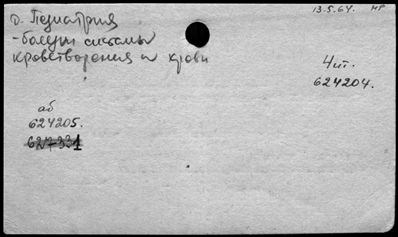 р. Педиатрия
13.5.64. МР
-болезни системы
кроветворения и крови
Чит.
624204.
аб
624205.
627331